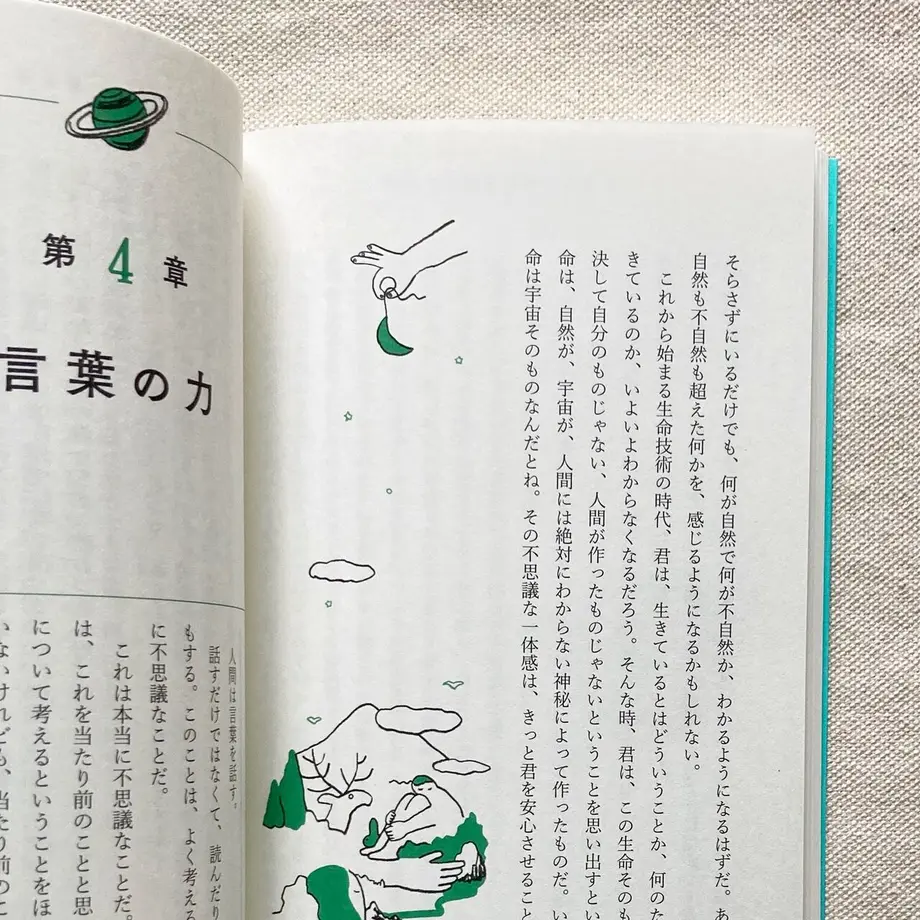 そらさずにいるだけでも、何が自然で何が不自然か、わかるようになるはずだ。あ
自然も不自然も超えた何かを、感じるようになるかもしれない。
これから始まる生命技術の時代、君は、生きているとはどういうことか、何のた
きているのか、いよいよわからなくなるだろう。そんな時、君は、この生命そのも
決して自分のものじゃない、人間が作ったものじゃないということを思い出すとい
命は、自然が、宇宙が、人間には絶対にわからない神秘によって作ったものだ。い
命は宇宙そのものなんだとね。その不思議な一体感は、きっと君を安心させること
第4章
言葉の力
人間は言葉を話す。
話すだけではなくて、読んだり
もする。このことは、よく考える
に不思議なことだ。
これは本当に不思議なことだ。
は、これを当たり前のことと思
について考えるということをほ
いないけれども、当たり前のこ